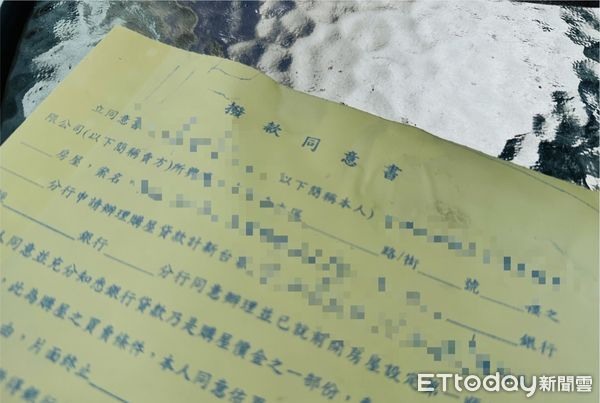 撥款同意書
立同意書 以下簡稱本人)
限公司(以下簡稱貴方)所
房屋,案名 路/街 號 樓之
分行申請辦理購屋貸款計新台 銀行
銀行 分行同意辦理並已就前開房屋設定
人同意並充分知悉銀行貸款乃是購屋價金之一部份,
,此為購屋之買賣條件,本人同意
由,片面終止
ETtoday新聞雲